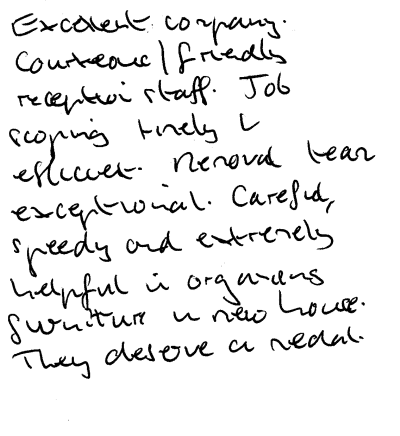 Excellent company.
Courteous/friendly
reception staff. Job
scoping timely &
efficient. Removal team
exceptional. Careful,
speedy and extremely
helpful in organising
furniture in new house.
They deserve a medal.